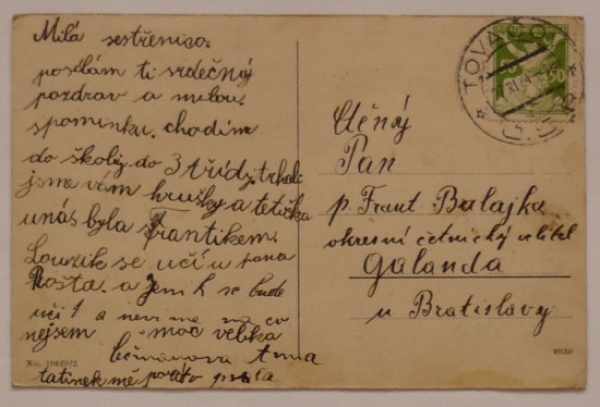 Milá sestřenico.
posílám ti srdečný
pozdrav a malou
spominku. chodím
do školy do 3 třídy. trhali
jsme vám hrušky a tetička
unás byla s Frantikem.
se učí u pana
Košta. a Jeník se bude
učit a neví me na co
nejsem moc velka
tatinek mě
No. 10680/2
TOVAČOV
Č.S.
Ctěný
Pan
p. Frant Balajka
okresní četnický velitel
Galanda
u Bratislavy